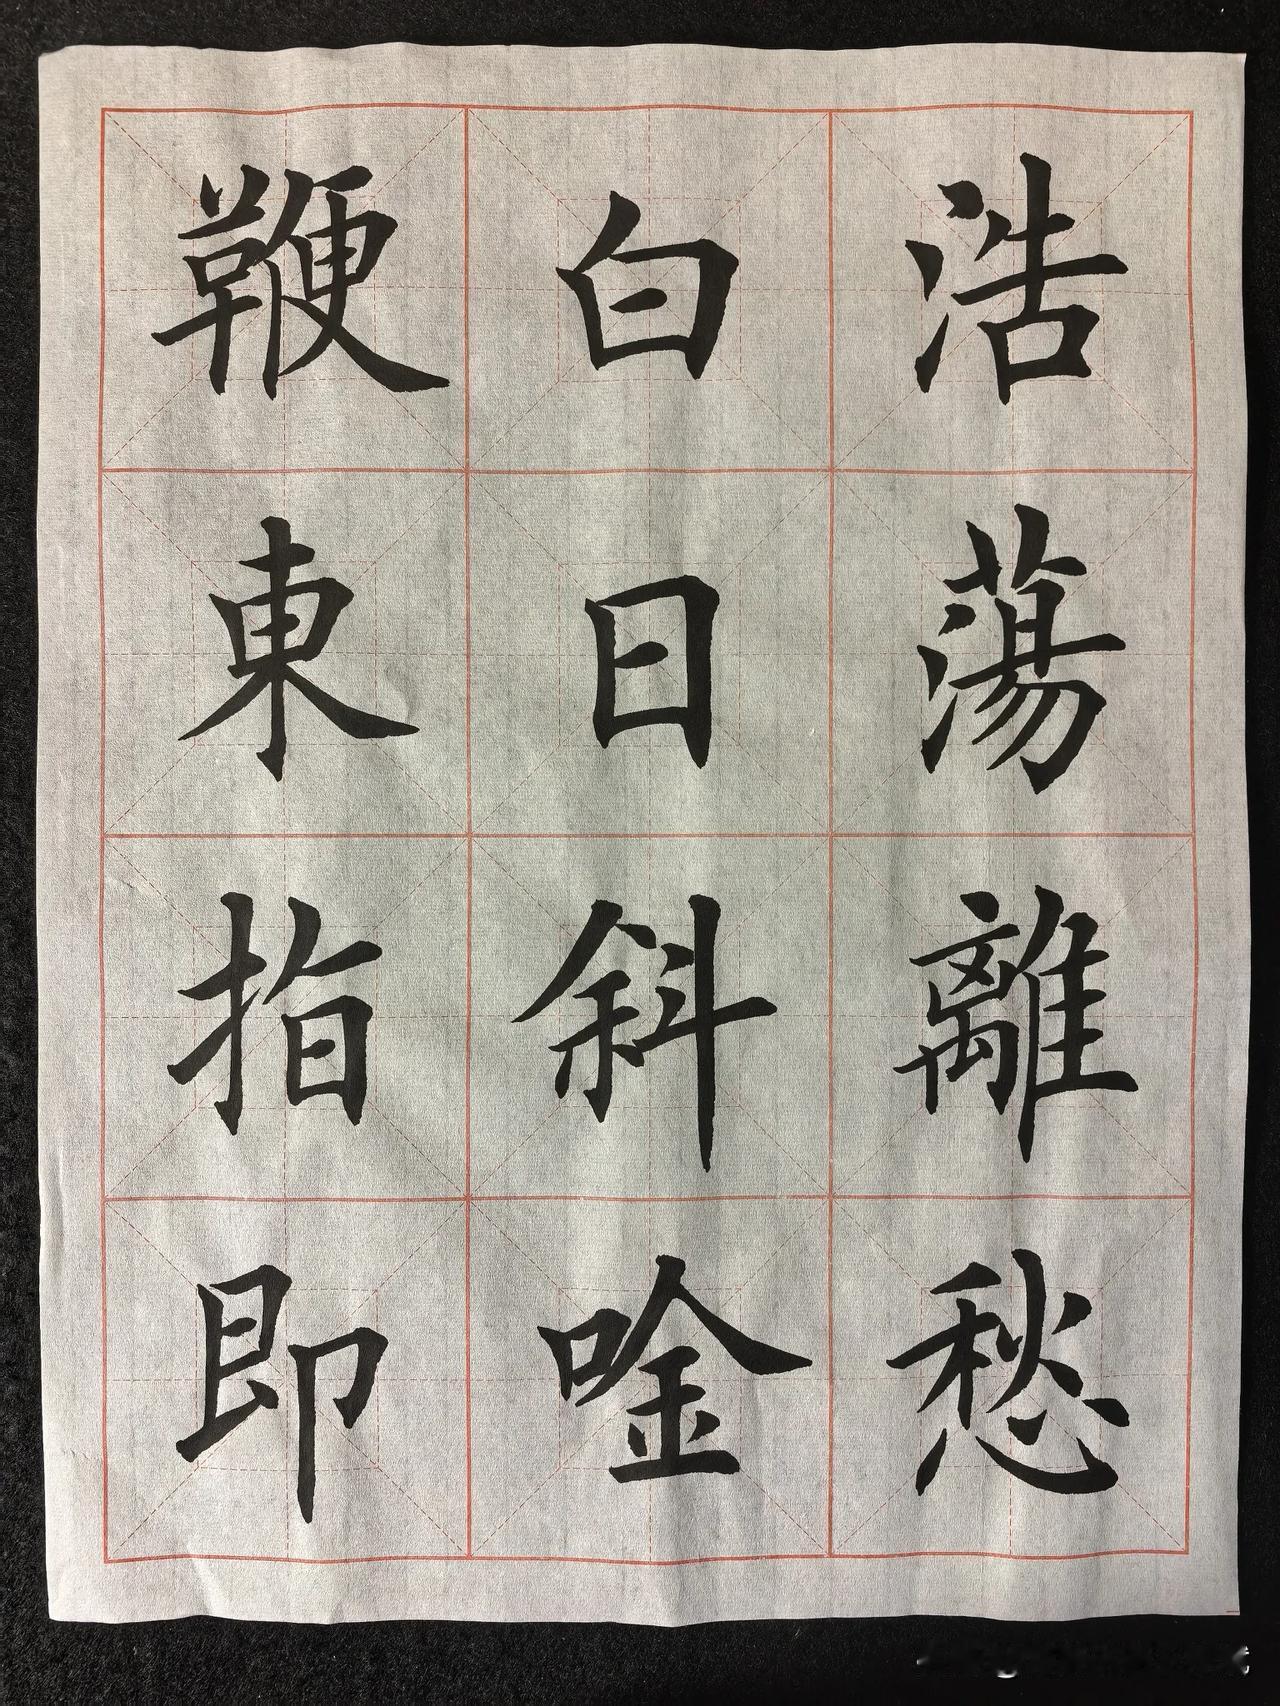 浩蕩離愁
白日斜唫
鞭東指即